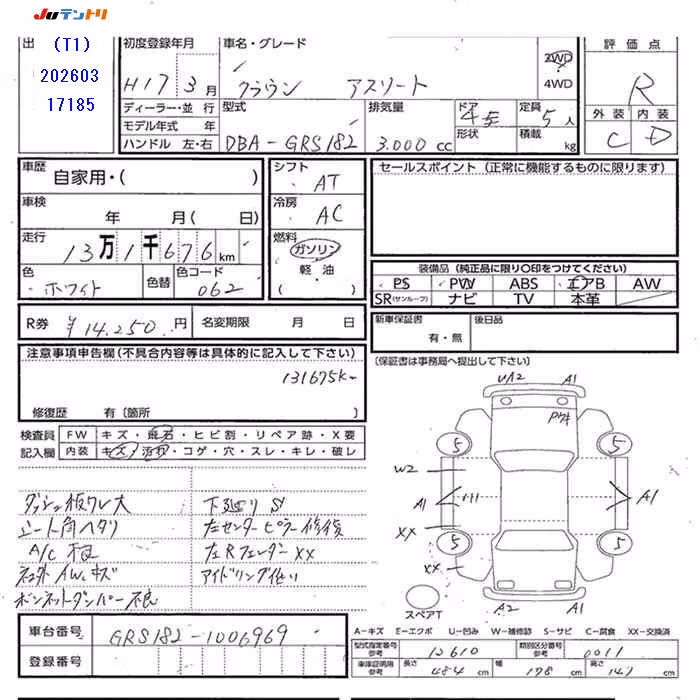 JUテントリ
出
(T1)
202603
17185
初度登録年月
H17 3月
車名・グレード
クラウン アスリート
2WD
4WD
評価点
R
外装 内装
C D
ディーラー・並行
モデル年式 年
ハンドル 左・右
型式
DBA-GRS182
排気量
3.000 cc
ドア
4
形状
定員
5人
積載
kg
車歴
自家用・( )
車検
年 月( 日)
走行
13万1千676km
色
ホワイト
色替
色コード
062
シフト
AT
冷房
AC
燃料
ガソリン
軽・油
( )
セールスポイント (正常に機能するものに限ります)
装備品 (純正品に限り○印をつけてください)
PS PW ABS エアB AW
SR(サンルーフ) ナビ TV 本革
R券 ¥14.250 円
名変期限 月 日
新車保証書
有・無
後日品
(保証書は事務局へ提出して下さい)
注意事項申告欄(不具合内容等は具体的に記入して下さい)
131675k
修復歴 有〔箇所 〕
検査員
記入欄
FW キズ・飛石・ヒビ割・リペア跡・X要
内装 キズ・汚れ・コゲ・穴・スレ・キレ・破レ
ダッシュ板ワレ大
シート角ヘタリ
A/C
AW キズ
ボンネットダンパー不良
下廻り S
左センターピラー修復
左Rフェンダー XX
アイドリング低い
UA2 A1
5 5
W2
A1 A1
XX
5 5
XX
スペアT
A2 A1
車台番号 GRS182-1006969
登録番号
A-キズ E-エクボ U-凹み W-補修跡 S-サビ C-腐食 XX-交換済
型式指定番号
参考
12610
類別区分番号
参考
0011
車庫証明用
参考
長さ 484 cm 幅 178 cm 高さ 147 cm